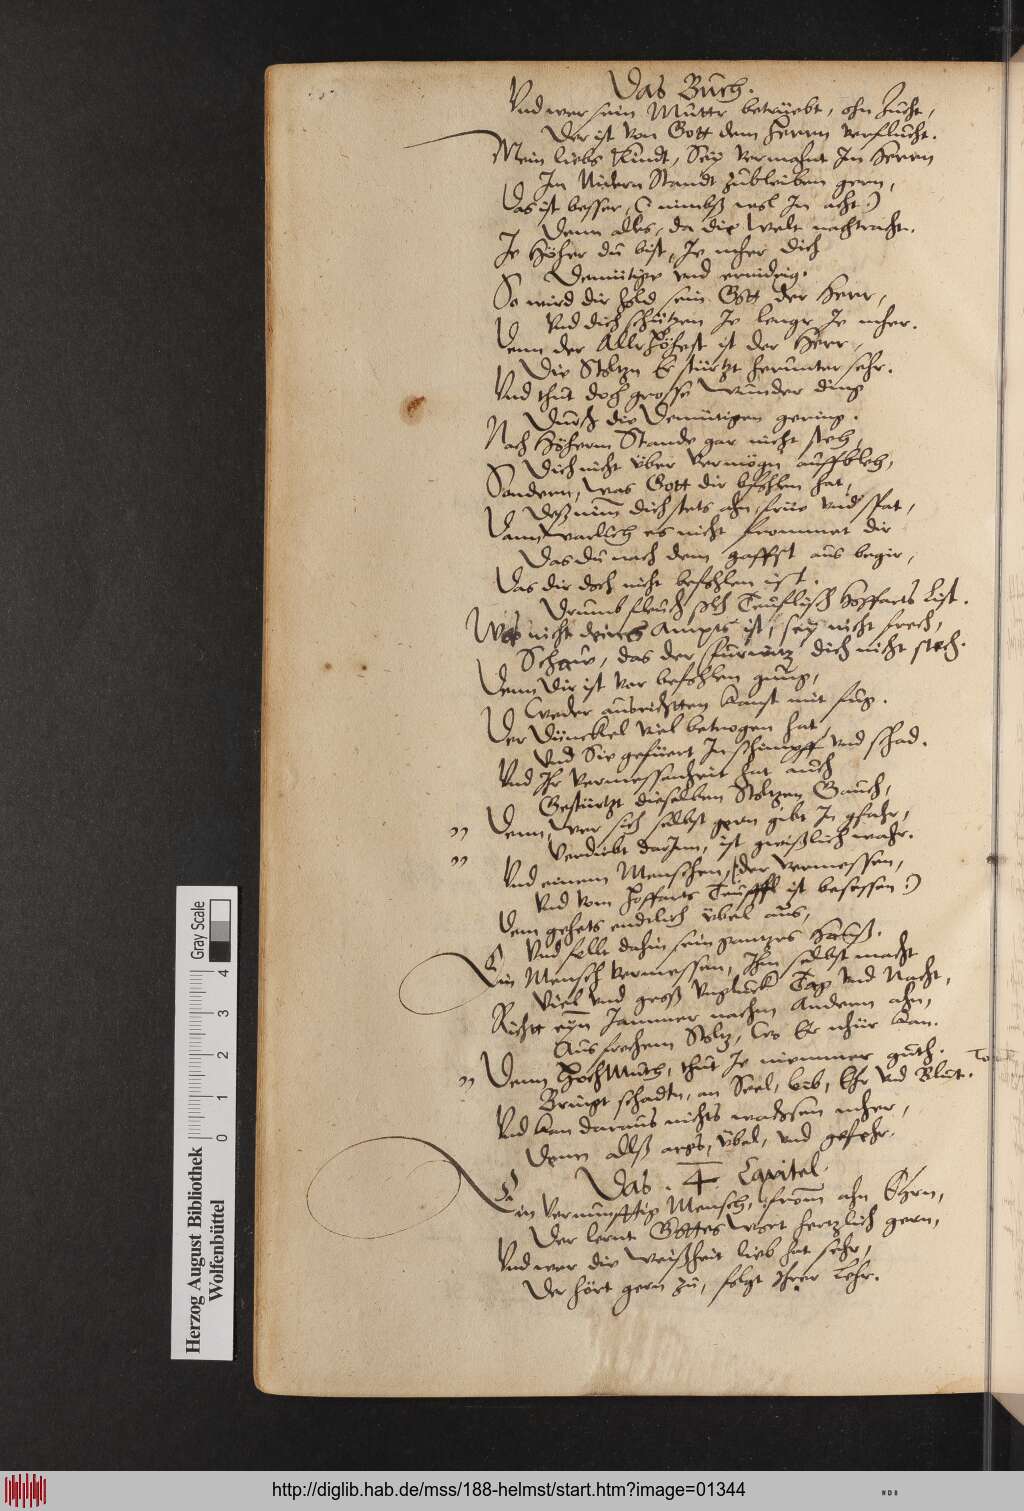 Das Buch.
Vnd wer sein Mutter betrüebt, ohn Zucht,
Der ist von Gott dem Herrn verflucht.
Mein liebs Kindt, Sey vermahnt Im Herrn
Im Nidern Standt zubleiben gern,
Das ist besser, (nimbs wol In acht)
Denn alles, da die Welt nachtracht.
Je Höher du bist, Je mher dich
Demütige vnd ernidrig.
So wird dir hold sein Gott der Herr,
Vnd dich schützen Je lenger Je mher.
Denn der Allrhöhest ist der Herr,
Die Stoltzn Er stürtzt herunter sehr.
Vnd thut doch grosse wunder ding
Durch die Demütigen gering.
Nach Höherm Stande gar nicht steh,
Dich nicht über vermögn auffbleh,
Sondern, was Gott dir befohlen hat,
Deß nim dich stets ahn, früe vnd spat,
Dann warlich es nicht frommet dir
Das du nach dem gaffst aus begir,
Das dir doch nicht befohlen ist.
Drumb fleuch solch Teuflisch Hoffarts List.
Was nicht deines Ampts ist, sey nicht frech,
Schaw, das der fürwitz dich nicht stech.
Denn Dir ist vor befohlen gnug,
Weder ausrichten kanst mit fug.
Der Dünckel viel betrogen hat,
Vnd Sie gefüert In schimpff vnd schad.
Vnd Ihr vermessenheit hat auch
Gestürtzt dieselben Stoltzen Gauch,
" Denn, wer sich selbst gern gibt In gfahr,
" Verdirbt darInn, ist gwißlich wahr.
Vnd einem Menschen, (der vermessen,
Vnd vom Hoffarts Teufffl ist besessen:)
Dem gehets endtlich übel aus,
Vnd fellt dahin sein gantzes Hauß.
Ein Mensch vermessen, Ihm selbst macht
Viel vnd groß vnglück Tag vnd Nacht,
Richtt eyn Jammer nachm Andern ahn,
Aus frechem Stoltz, Wo Er nhür kan.
" Denn HochMuth, thut Je nimmer guth.
Bringt schadtn, an Seel, leib, Ehr vnd Blut.
Vnd kan daraus nichts wachsen mher,
Denn allß args, übel, vnd gefehr.
Das .4. Capitel.
Ein vernünfftig Mensch, from ahn
Der lernt Gottes Wort hertzlich gern,
Vnd wer die weißheit lieb hat sehr,
Der hört gern zu, folgt Ihrer Lehr.
Gray Scale
0 1 2 3 4
Herzog August Bibliothek
Wolfenbüttel
http://diglib.hab.de/mss/188-helmst/start.htm?image=01344